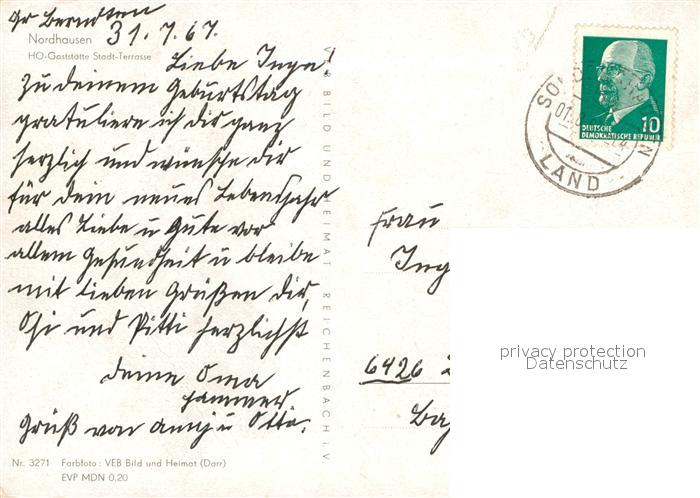 Gr Berndten
31.7.67.
Nordhausen
HO-Gaststätte Stadt-Terrasse
Liebe Inga!
Zu deinem Geburtstag
gratuliere ich dir ganz
herzlich und wünsche dir
für dein neues Lebensjahr
alles Liebe u Gute vor
allem Gesundheit u bleibe
mit lieben Grüßen dir,
und Pitti herzlichst
deine Oma
Hammer
Gruß von u Otto.
Nr. 3271 Farbfoto: VEB Bild und Heimat (Darr)
EVP MDN 0,20
VEB BILD UND HEIMAT REICHENBACH i. V.
10
DEUTSCHE
DEMOKRATISCHE REPUBLIK
LAND
Frau
Ing
6426
privacy protection
Datenschutz